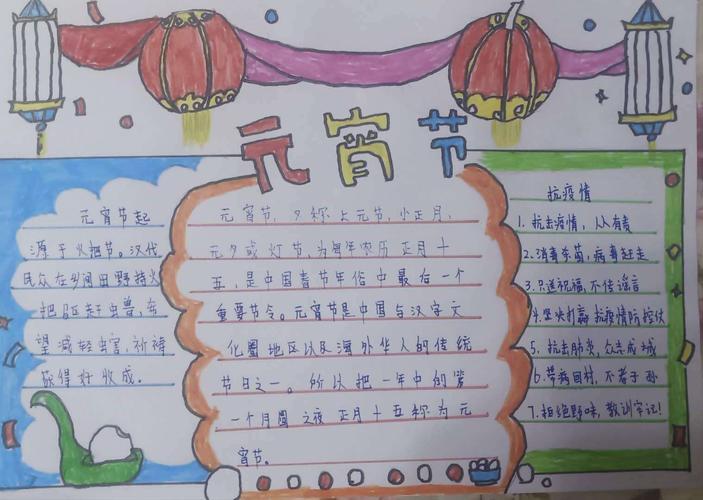 元宵节
元宵节起
源于火把节。汉代
民众在乡间田野持火
把驱赶虫兽,
望减轻虫害,祈祷
获得好收成。
元宵节,又称上元节,小正月,
元夕或灯节,为每年农历正月十
五,是中国春节年俗中最后一个
重要节令。元宵节是中国与汉字文
化圈地区以及海外华人的传统
节日之一。所以把一年中的第
一个月圆之夜正月十五称为元
宵节。
抗疫情
1.抗击疫情,人人有责
2.消毒杀菌,病毒赶走
3.只送祝福,不传谣言
4.坚决打赢抗疫情防控仗
5.抗击肺炎,众志成城
6.带病回村,不孝子孙
7.拒绝野味,教训牢记!